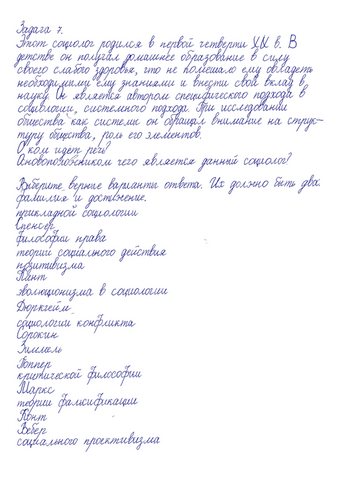 Задача 7.
Этот социолог родился в первой четверти XX в. В
детстве он получал домашнее образование в силу
своего слабого здоровья, что не помешало ему овладеть
необходимыми ему знаниями и внести свой вклад в
науку. Он является автором специфического подхода в
социологии, системного подхода. При исследовании
общества как системы он обращал внимание на струк-
туру общества, роль его элементов.
О ком идет речь?
Основоположником чего является данный социолог?
Выберите верные варианты ответа. Их должно быть два:
фамилия и достижение.
прикладной социологии
Спенсер
философии права
теории социального действия
позитивизма
Кант
эволюционизма в социологии
Дюркгейм
социологии конфликта
Сорокин
Зиммель
Поппер
критической философии
Маркс
теории фальсификации
Конт
Вебер
социального проективизма